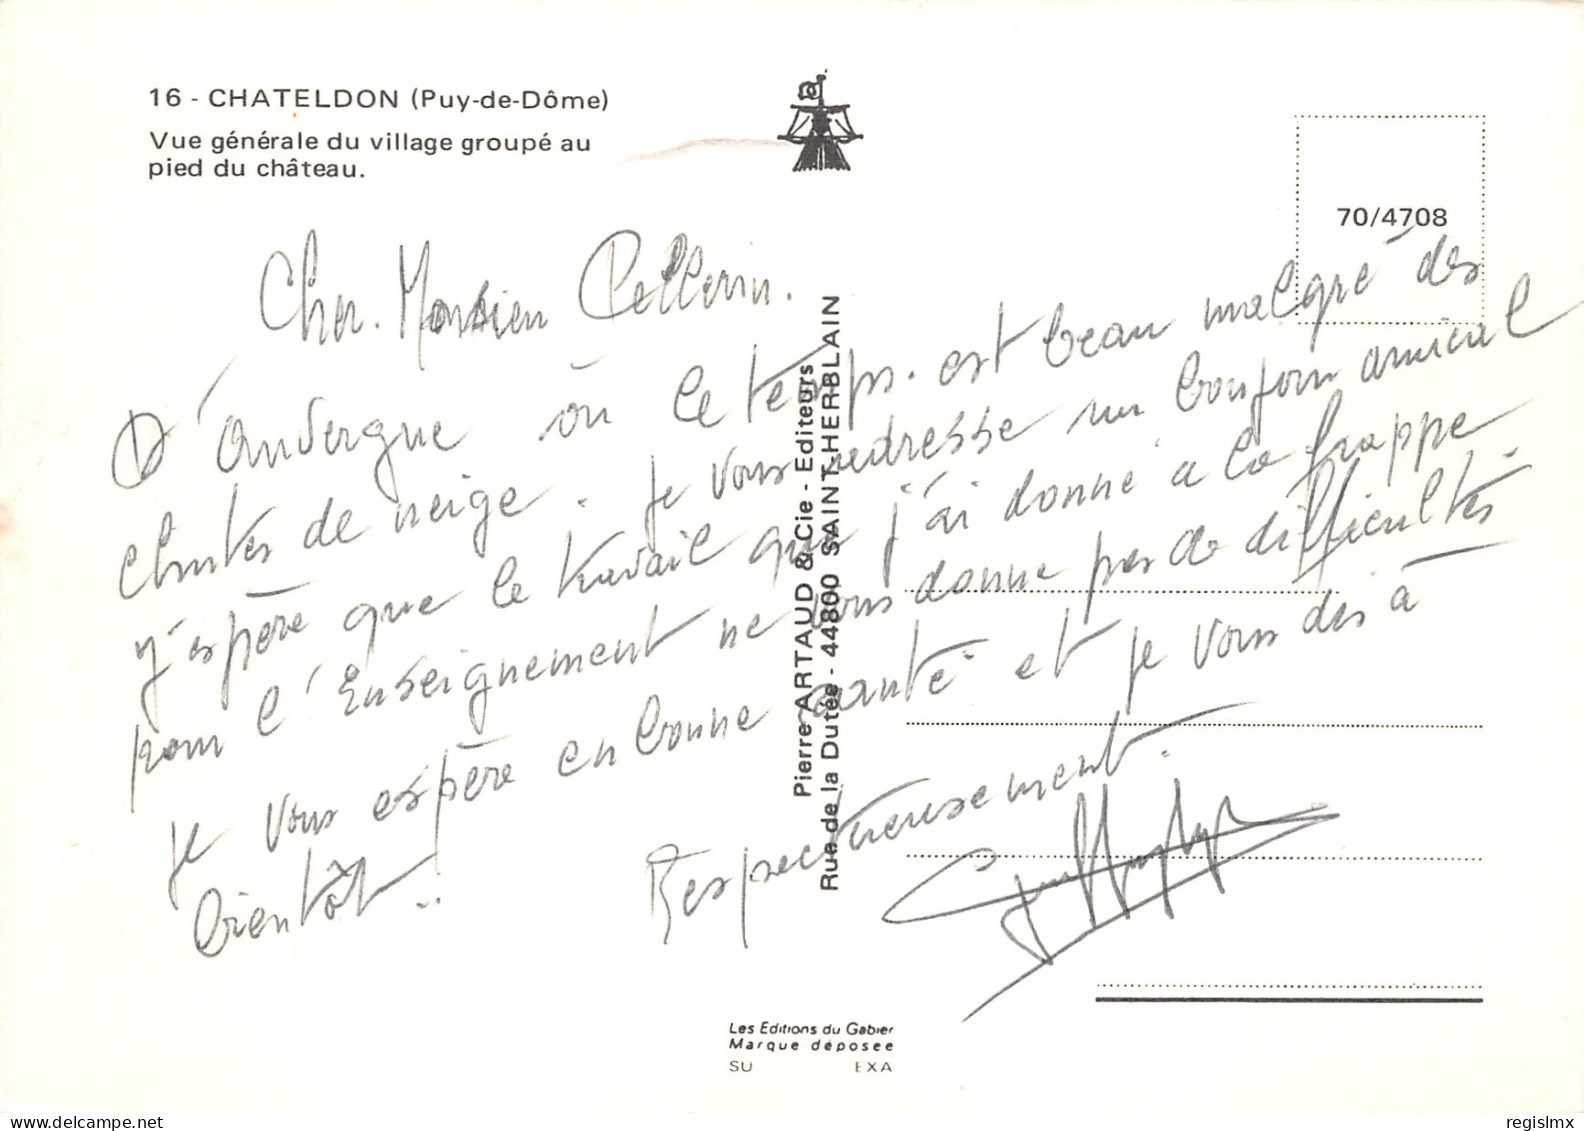 16 - CHATELDON (Puy-de-Dôme)
Vue générale du village groupé au
pied du château.
70/4708
Cher Monsieur Pellerin.
D'Auvergne où le temps est beau malgré des
chutes de neige. Je vous adresse un bonjour amical
J'espère que le travail que j'ai donné à la frappe
pour l'Enseignement ne vous donne pas de difficultés.
Je vous espère en bonne santé et je vous dis à
bientôt..
Respectueusement.
Pierre ARTAUD & Cie - Editeurs
Rue de la Dutée - 44800 SAINT-HERBLAIN
Les Editions du Gabier
Marque déposee
SU EXA
regislmx